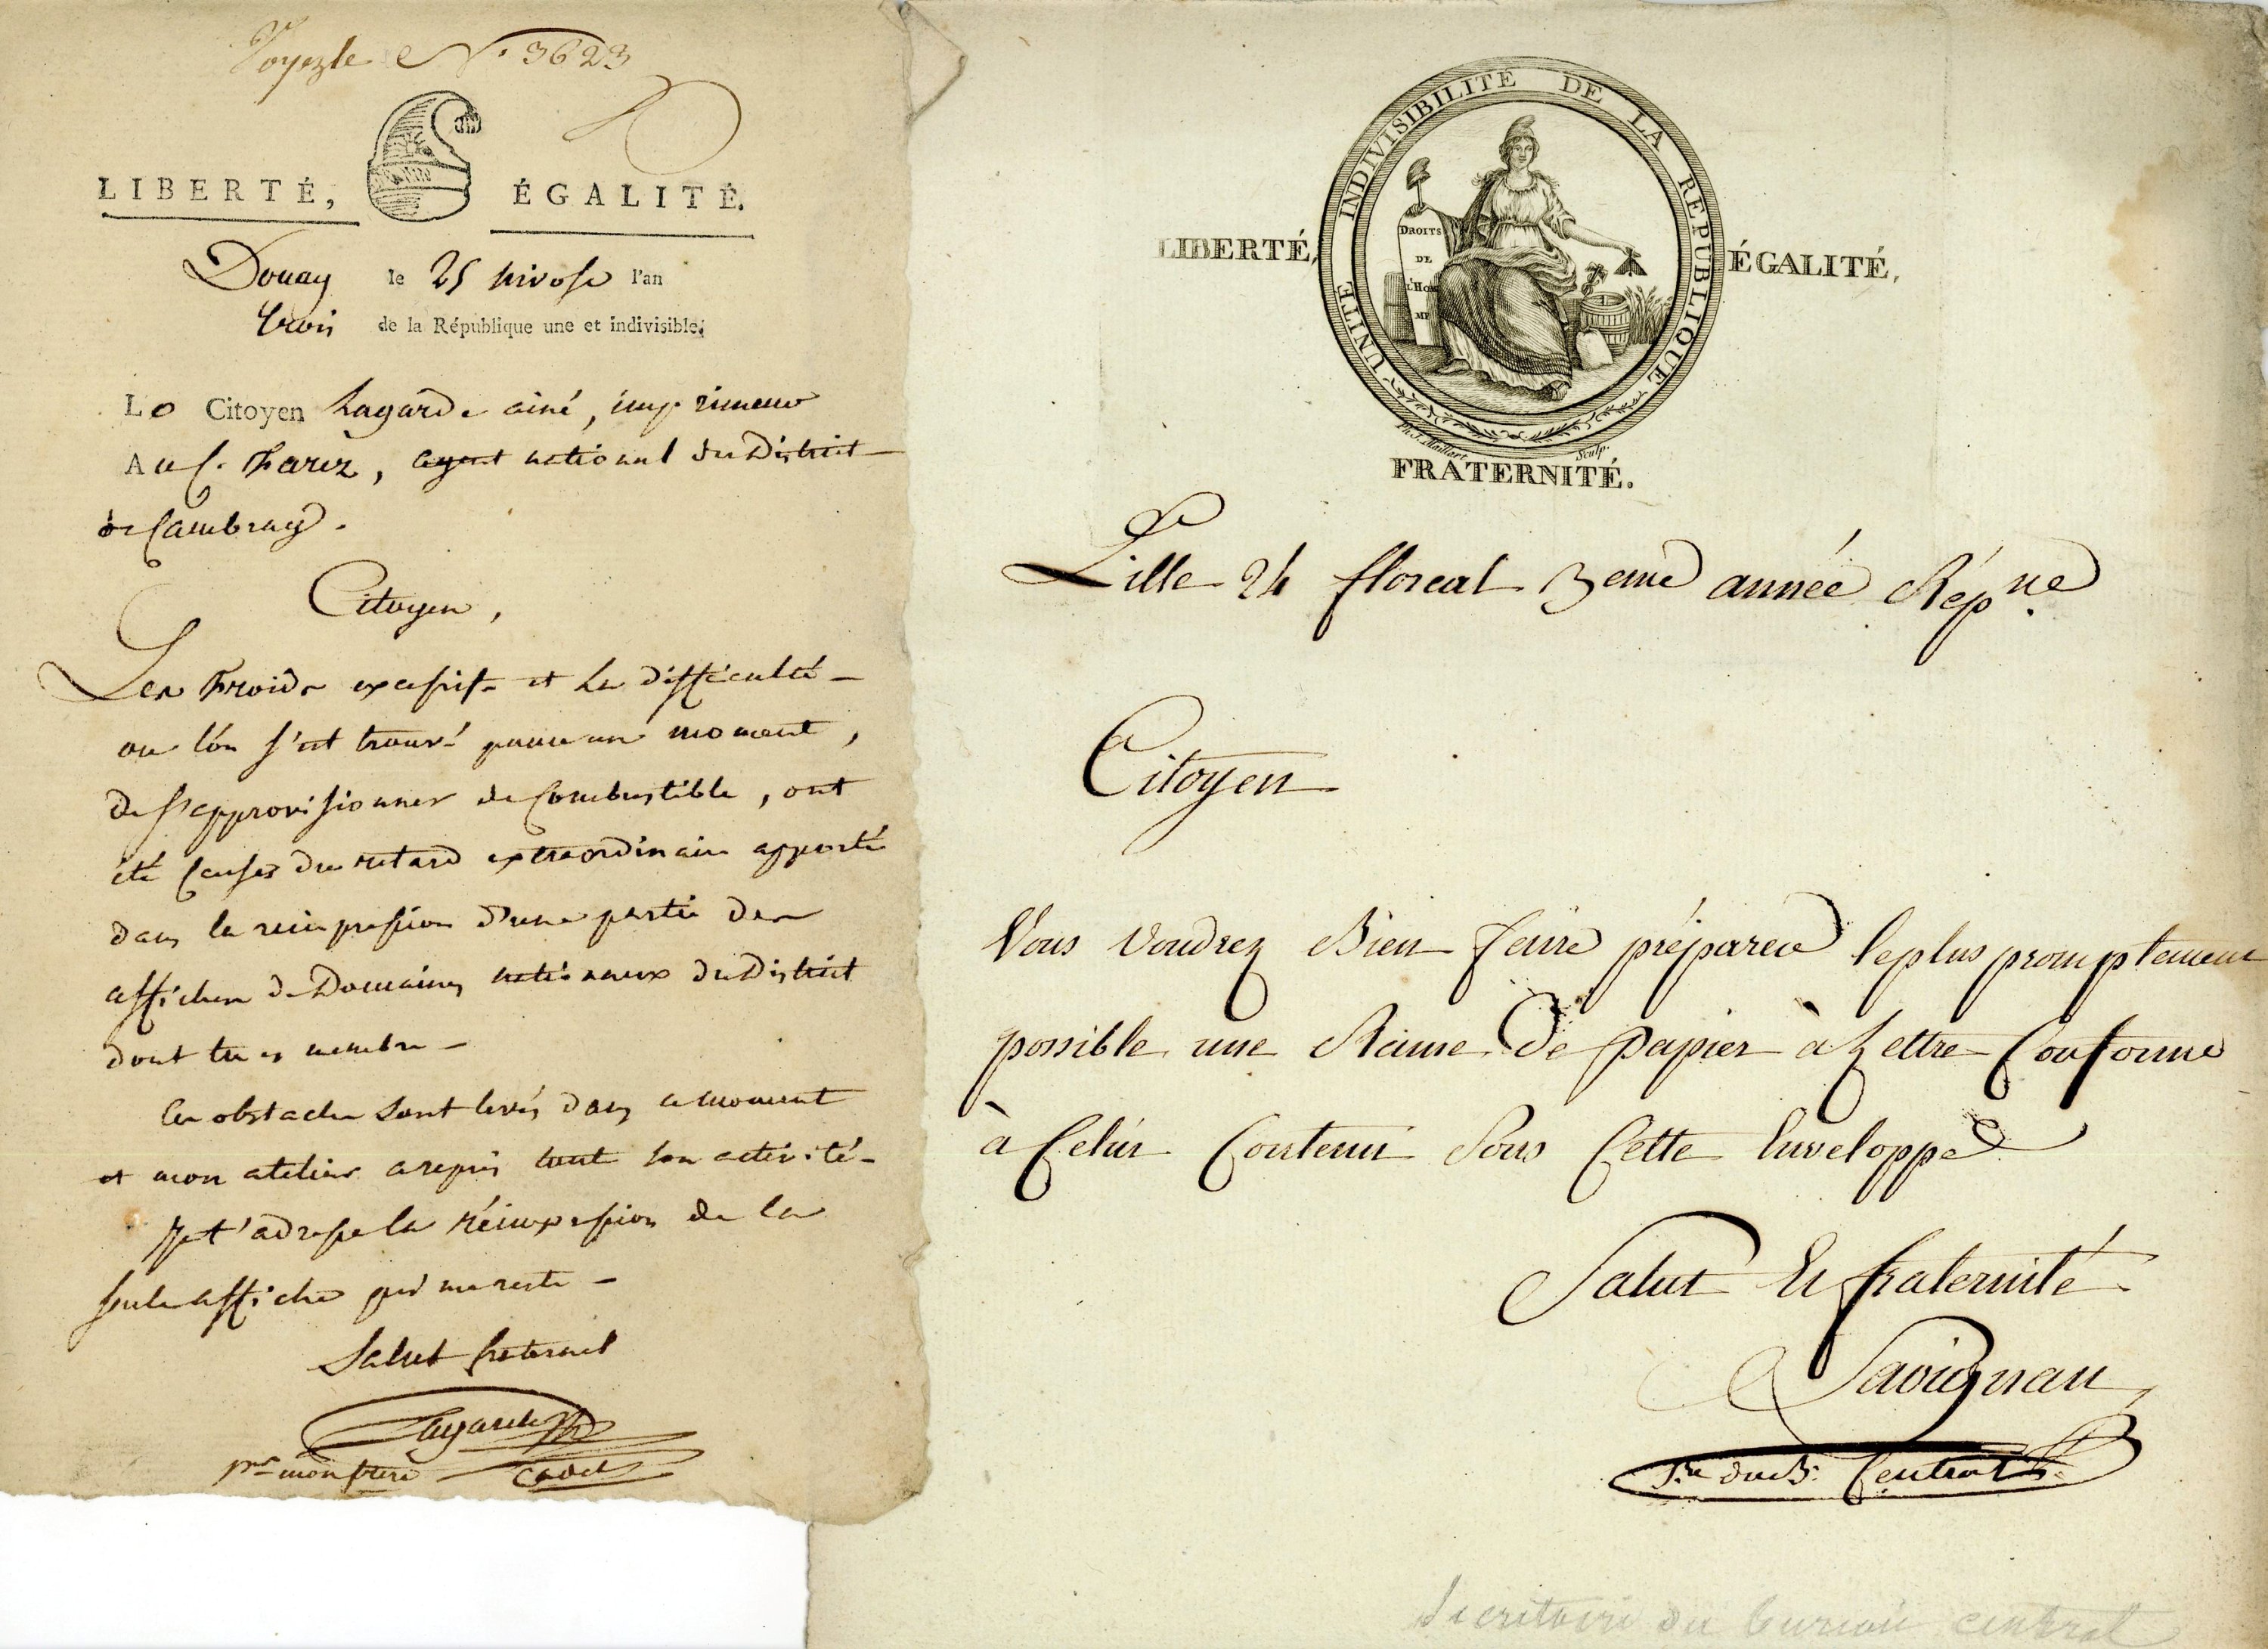 Voyez le N.º 3623
LIBERTÉ, ÉGALITÉ.
Douay le 25 nivose l'an
trois de la République une et indivisible.
Le Citoyen Lagarde ainé, imprimeur
Au C. Farez, agent national du District
de Cambray.
Citoyen,
Les froids excessifs et la difficulté
ou l'on s'est trouvé pour un moment,
de s'approvisionner de Combustible, ont
été Causes du retard extraordinaire apporté
dans la reimpression d'une partie des
affiches de Domaines nationaux du District
dont tu es membre
Ces obstacles sont levés dans ce moment
et mon atelier a repris tout son activité
Je t'adresse la réimpression de la
seule affiche qui me reste
Salut fraternel
Lagarde
pr. mon frere
Cadet
UNITÉ INDIVISIBILITÉ DE LA RÉPUBLIQUE
DROITS
DE
L'HOM
ME
LIBERTÉ, ÉGALITÉ,
Ph. J. Maillart Sculp.
FRATERNITÉ.
Lille 24 floreal 3eme année Répne
Citoyen
Vous voudrez Bien faire préparer le plus promptement
possible une Rame de papier à Lettre Conforme
à Celui Contenu Sous Cette Enveloppe
Salut Et fraternité
Savignan
Sre du B. Central
Secrétaire du bureau central